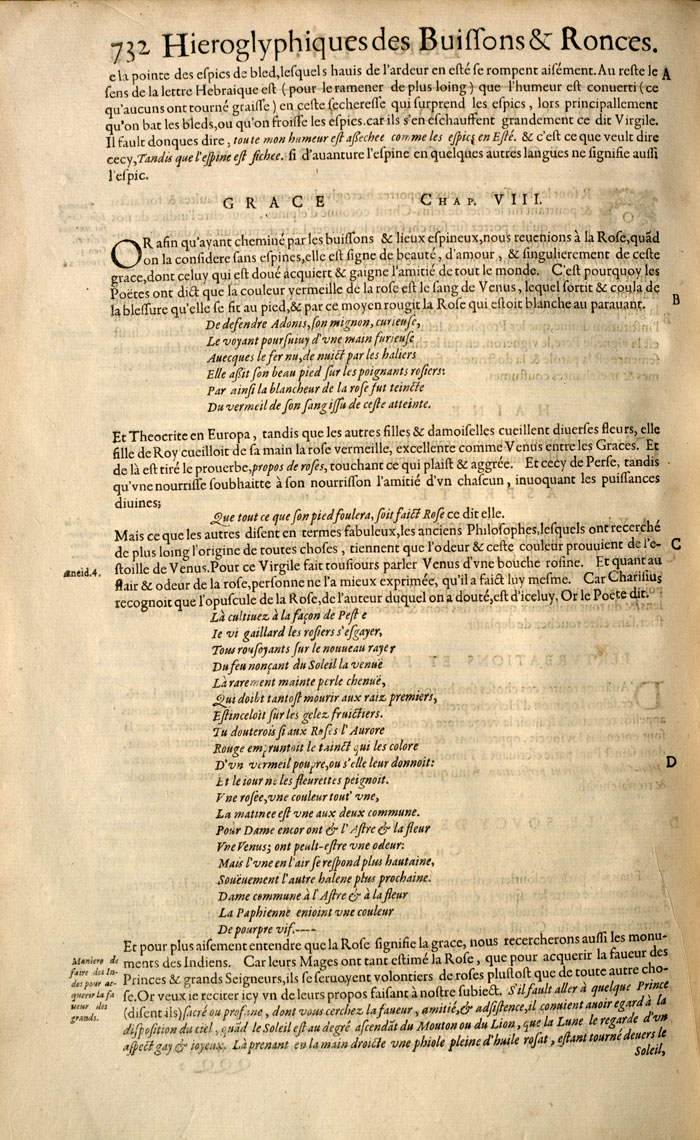 732 Hieroglyphiques des Buiſſons & Ronces.
e la pointe des eſpics de bled,leſquels hauis de l'ardeur en eſté ſe rompent aiſément. Au reſte le A
ſens de la lettre Hebraique eſt ( pour le ramener de plus loing ) que l'humeur eſt conuerti ( ce
qu'aucuns ont tourné graiſſe ) en ceſte ſechereſſe qui ſurprend les eſpics , lors principallement
qu'on bat les bleds,ou qu'on froiſſe les eſpics.car ils s'en eſchauffent grandement ce dit Virgile.
Il fault donques dire , toute mon humeur eſt aſſechee comme les eſpics en Eſté. & c'eſt ce que veult dire
cecy,Tandis que l'eſpine eſt fichee. ſi d'auanture l'eſpine en quelques autres langues ne ſignifie auſſi
l'eſpic.
GRACE CHAP. VIII.
OR afin qu'ayant cheminé par les buiſſons & lieux eſpineux,nous reuenions à la Roſe,quãd
on la conſidere ſans eſpines,elle eſt ſigne de beauté , d'amour , & ſingulierement de ceſte
grace,dont celuy qui eſt doué acquiert & gaigne l'amitié de tout le monde. C'eſt pourquoy les
Poëtes ont dict que la couleur vermeille de la roſe eſt le ſang de Venus , lequel ſortit & coula de
la bleſſure qu'elle ſe fit au pied,& par ce moyen rougit la Roſe qui eſtoit blanche au parauant. B
De defendre Adonis,ſon mignon, curieuſe,
Le voyant pourſuiuy d'vne main furieuſe
Auecques le fer nu,de nuict par les haliers
Elle aſſit ſon beau pied ſur les poignants roſiers:
Par ainſi la blancheur de la roſe fut teincte
Du vermeil de ſon ſang iſſu de ceſte atteinte.
Et Theocrite en Europa , tandis que les autres filles & damoiſelles cueillent diuerſes fleurs, elle
fille de Roy cueilloit de ſa main la roſe vermeille, excellente comme Venus entre les Graces. Et
de là eſt tiré le prouerbe,propos de roſes, touchant ce qui plaiſt & aggrée. Et cecy de Perſe, tandis
qu'vne nourriſſe ſoubhaitte à ſon nourriſſon l'amitié d'vn chaſcun , inuoquant les puiſſances
diuines;
Que tout ce que ſon pied foulera, ſoit faict Roſe ce dit elle.
Mais ce que les autres diſent en termes fabuleux,les anciens Philoſophes,leſquels ont recerché
de plus loing l'origine de toutes choſes , tiennent que l'odeur & ceſte couleur prouuient de l'e- C
ſtoille de Venus.Pour ce Virgile fait touſiours parler Venus d'vne bouche roſine. Et quant au
Æneid.4.
flair & odeur de la roſe,perſonne ne l'a mieux exprimée, qu'il a faict luy meſme. Car Chariſius
recognoit que l'opuſcule de la Roſe,de l'auteur duquel on a douté,eſt d'iceluy, Or le Poëte dit.
Là cultiuez à la façon de Peſte
Ie vi gaillard les roſiers s'eſgayer,
Tous rouſoyants ſur le nouueau rayer
Du feu nonçant du Soleil la venuë
Là rarement mainte perle chenuë,
Qui doibt tantoſt mourir aux raiz premiers,
Eſtinceloit ſur les gelez fruictiers.
Tu douterois ſi aux Roſes l'Aurore
Rouge empruntoit le tainct qui les colore
D'vn vermeil poupre,ou s'elle leur donnoit: D
Et le iour ne les fleurettes peignoit.
Vne roſée,vne couleur tout' vne,
La matinee eſt vne aux deux commune.
Pour Dame encor ont & l'Aſtre & la fleur
Vne Venus; ont peult-eſtre vne odeur:
Mais l'vne en l'air ſe reſpond plus hautaine,
Souëuement l'autre halene plus prochaine.
Dame commune à l'Aſtre & à la fleur
La Paphienne enioint vne couleur
De pourpre vif.----
Et pour plus aiſement entendre que la Roſe ſignifie la grace, nous recercherons auſſi les monu-
ments des Indiens. Car leurs Mages ont tant eſtimé la Roſe , que pour acquerir la faueur des
Princes & grands Seigneurs,ils ſe ſeruoyent volontiers de roſes pluſtoſt que de toute autre cho-
ſe.Or veux ie reciter icy vn de leurs propos faiſant à noſtre ſubiect. S'il fault aller à quelque Prince
(diſent ils)ſacré ou profane , dont vous cerchez la faueur , amitié,& adſiſtence,il conuient auoir egard à la
diſpoſition du ciel , quãd le Soleil eſt au degré aſcendãt du Mouton ou du Lion, que la Lune le regarde d'vn
aſpect gay & ioyeux. Là prenant en la main droicte vne phiole pleine d'huile roſat , eſtant tourné deuers le
Soleil,
Maniere de
faire des In-
des pour ac-
querir la fa
ueur des
grands.